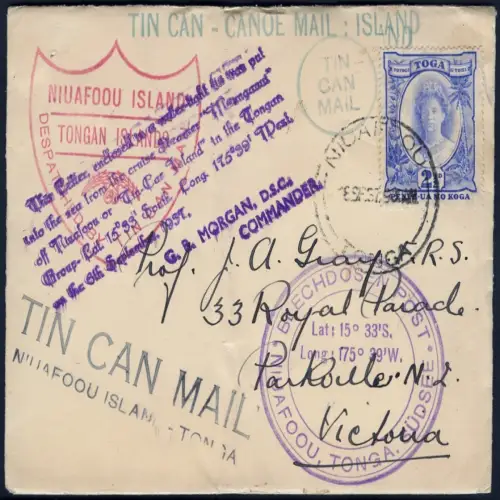 TIN CAN - CANOE MAIL : ISLAND
TIN
CAN
MAIL
TOGA
2½
KOGA
NIUAFOOU ISLAND
TONGAN ISLANDS
TIN CAN
This letter, enclosed in a
into the sea from the cruise Steamer
off Niuafoou or "Tin-Can Island" in the Tongan
Group. Lat. 15°33' South Long. 175°39' West.
on the 6th September 1937.
G. B. MORGAN, D.S.C.,
COMMANDER.
NIUAFOOU
Prof. J. A. Gray F.R.S.
33 Royal Parade
Parkville N.2.
Victoria
TIN CAN MAIL
NIUAFOOU ISLAND - TONGA
BLECHDOSEN POST
Lat: 15° 33'S.
Long: 175° 39'W.
NIUAFOOU, TONGA, SÜDSEE